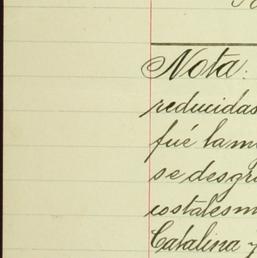 Nota:
reducidas
fué lam
se desgr
costales m
Catalina y